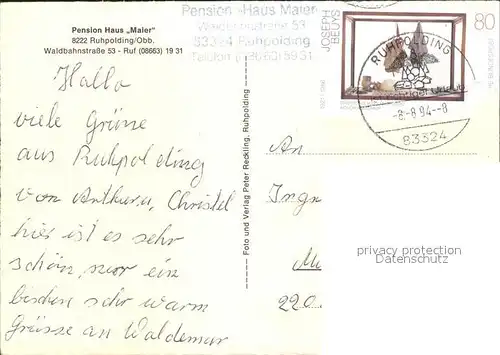 Pension Haus „Maier"
8222 Ruhpolding/Obb.
Waldbahnstraße 53 - Ruf (08663) 19 31
Pension Haus Maier
Waldbahnstraße 53
83324 Ruhpolding
Telefon
JOSEPH
BEUYS
80
RUHPOLDING
-8.-8.94--8
83324
Hallo
viele Grüße
aus Ruhpolding
von Arthur u. Christel
hier ist es sehr
schön, nur ein
bischen sehr warm
Grüsse an Waldemar
Foto und Verlag Peter Reckling, Ruhpolding
An
Ingr
220
privacy protection
oldthing.de